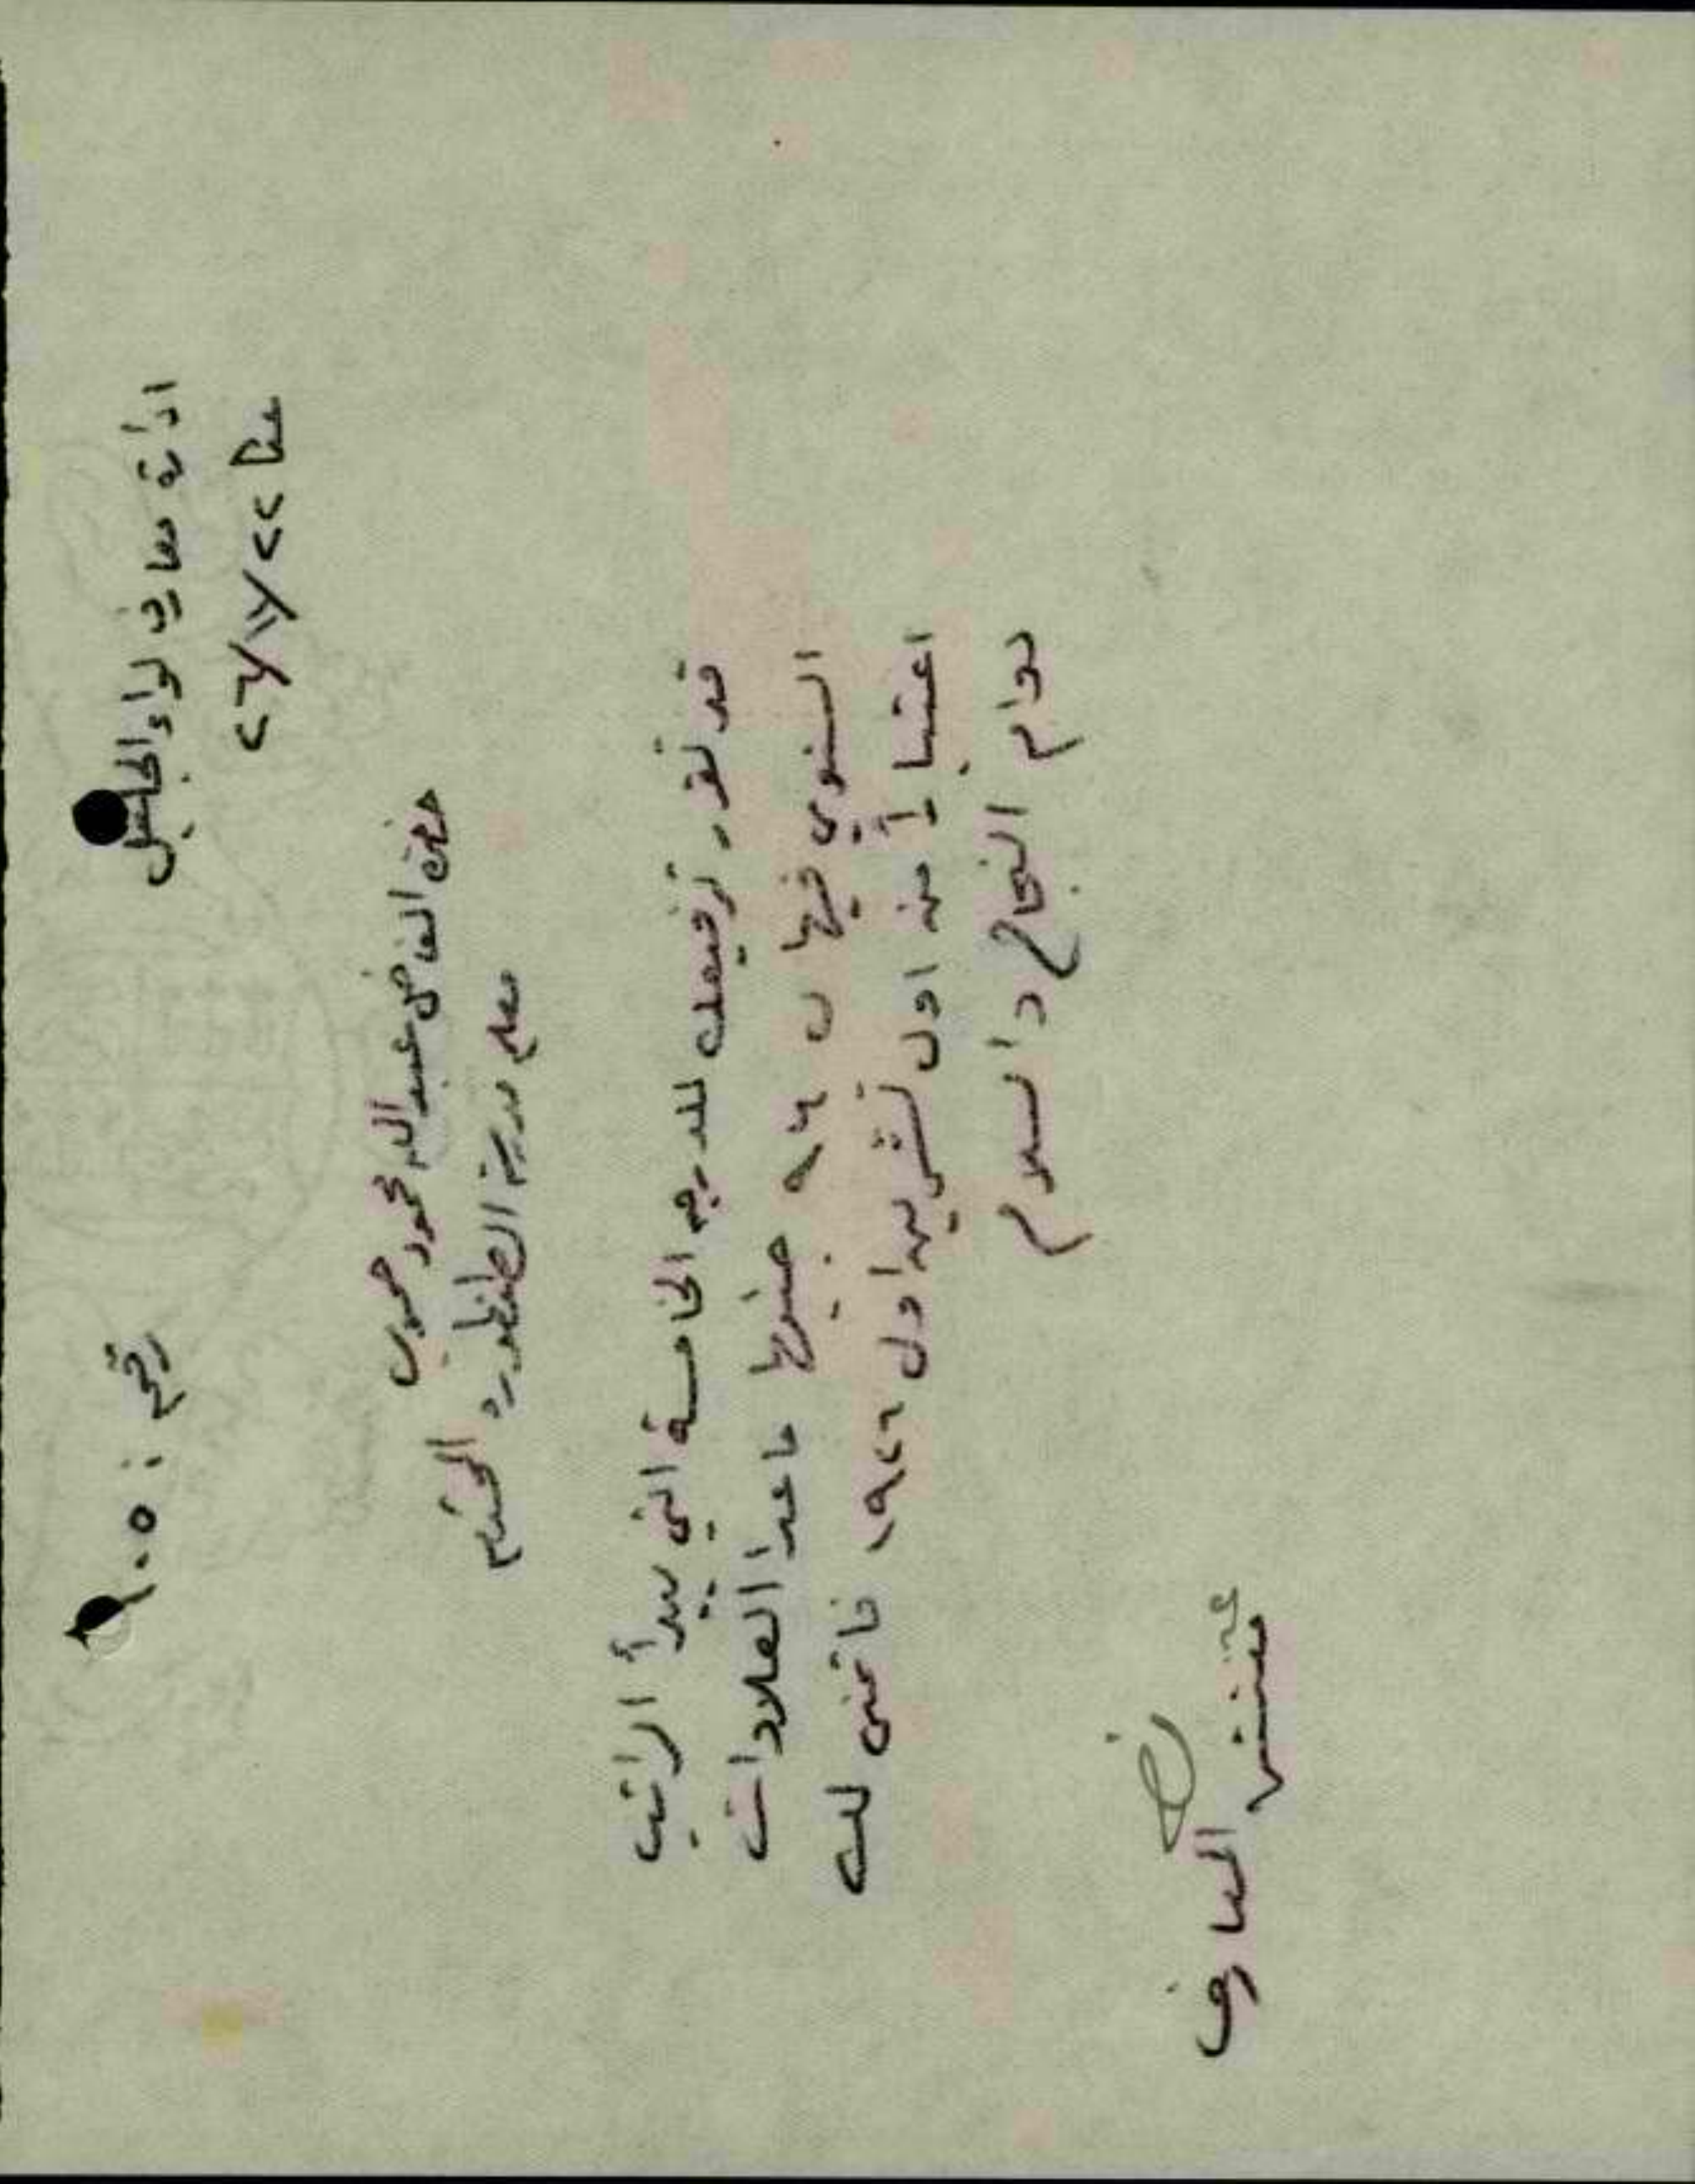 ادارة معارف لواء الجليل
عكا ٢٢/١١/٢٦
رقم : ١٠٥
حضرة الفاضل عبد الله محمود
معلم مدرسة المحترم
قد تقرر ترفيعك للدرجه الخامسة التي يبدأ الراتب
السنوي فيها ب ٩٦ جنيها ما عدا العلاوات
اعتبارأ من اول تشرين اول ١٩٢٦ فاتمنى لك
دوام النجاح والسلام
مفتش المعارف